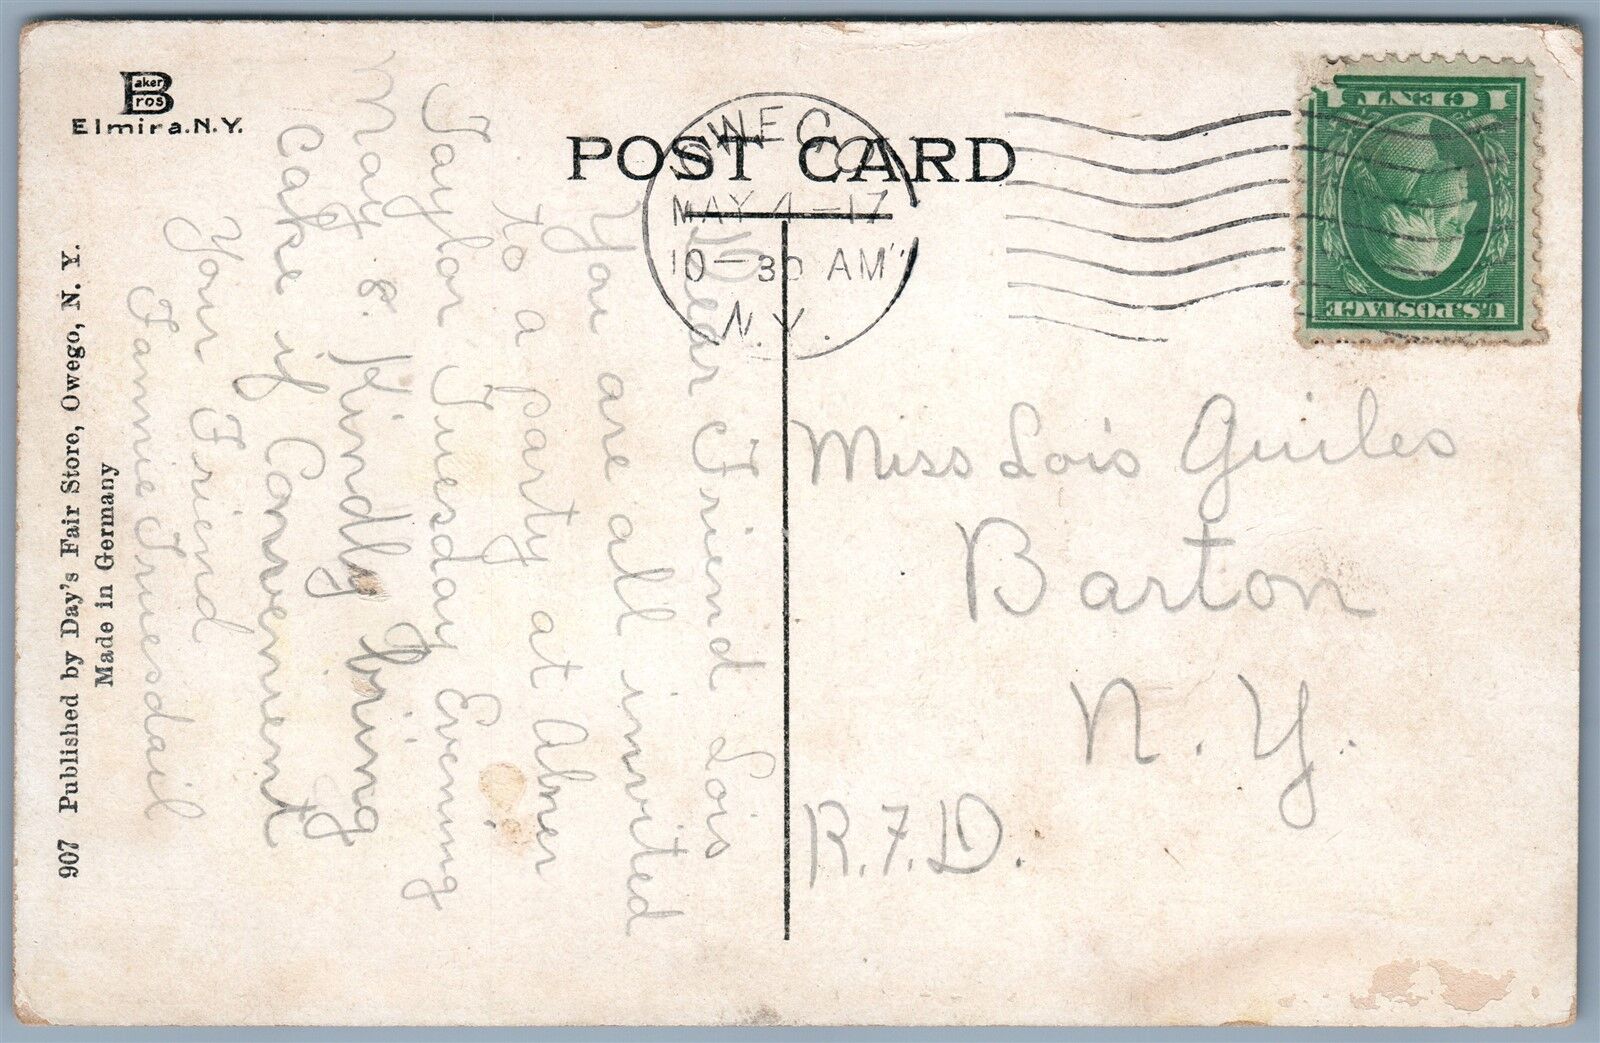 Baker Bros
Elmira.N.Y.
POST CARD
OWEGO
MAY 4-17
10-30 AM
N.Y.
1 CENT 1
U.S. POSTAGE
Dear Friend Lois
You are all invited
to a party at Abner
Taylor Tuesday Evening
May 8. Kindly bring
Cake if Convenient
Your Friend
Fannie Truesdail
907 Published by Day's Fair Store, Owego, N. Y.
Made in Germany
Miss Lois Guiles
Barton
N. Y.
R.F.D.